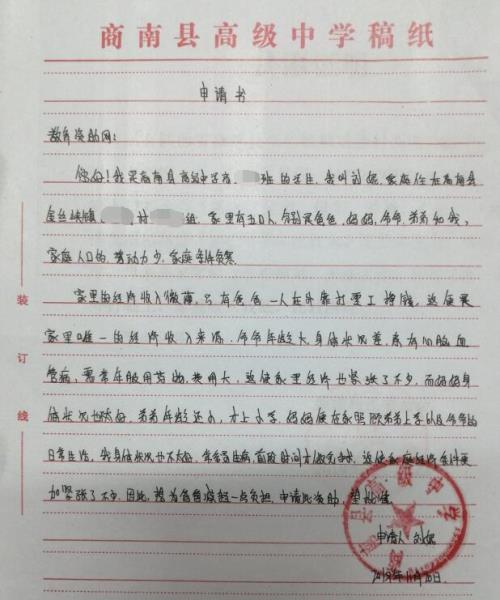 商南县高级中学稿纸
申请书
教育资助网：
你好！我是商南县高级中学高 班的学生，我叫刘妮，家庭住在商南县
金丝峡镇 村 组，家里有五口人，分别是爸爸，妈妈，爷爷，弟弟和我，
家庭人口多，劳动力少，家庭条件贫寒。
家里的经济收入微薄，只有爸爸一人在外靠打零工挣钱，这便是
家里唯一的经济收入来源，爷爷年龄大身体状况差，患有心脑血
管病，需常年服用药物，费用大，这使家里经济也紧张了不少，而妈妈身
体状况也不太好，弟弟年龄还小，才上小学，妈妈便在家照顾弟弟上学以及爷爷的
日常生活，我身体状况也不太好，常常生病，前段时间才做完手术，这使家庭经济条件更
加紧张了不少，因此，想为爸爸减轻一点负担，申请此资助，望批准。
申请人：刘妮
2019年11月
装
订
线